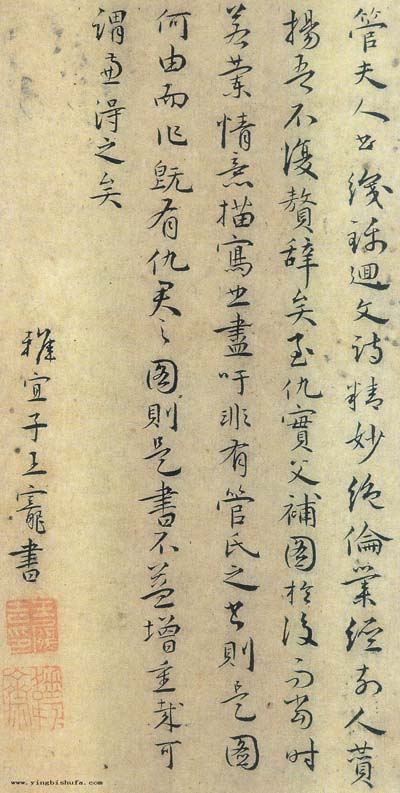 管夫人書織錦迴文詩精妙絕倫業經前人賛
揚吾不復贅辭矣至仇實父補圖於後而當時
若蘭情意描寫曲盡吁非有管氏之書則是圖
何由而作既有仇君之圖則是書不益增重哉可
謂兩得之矣
雅宜子王寵書
www.yingbishufa.com